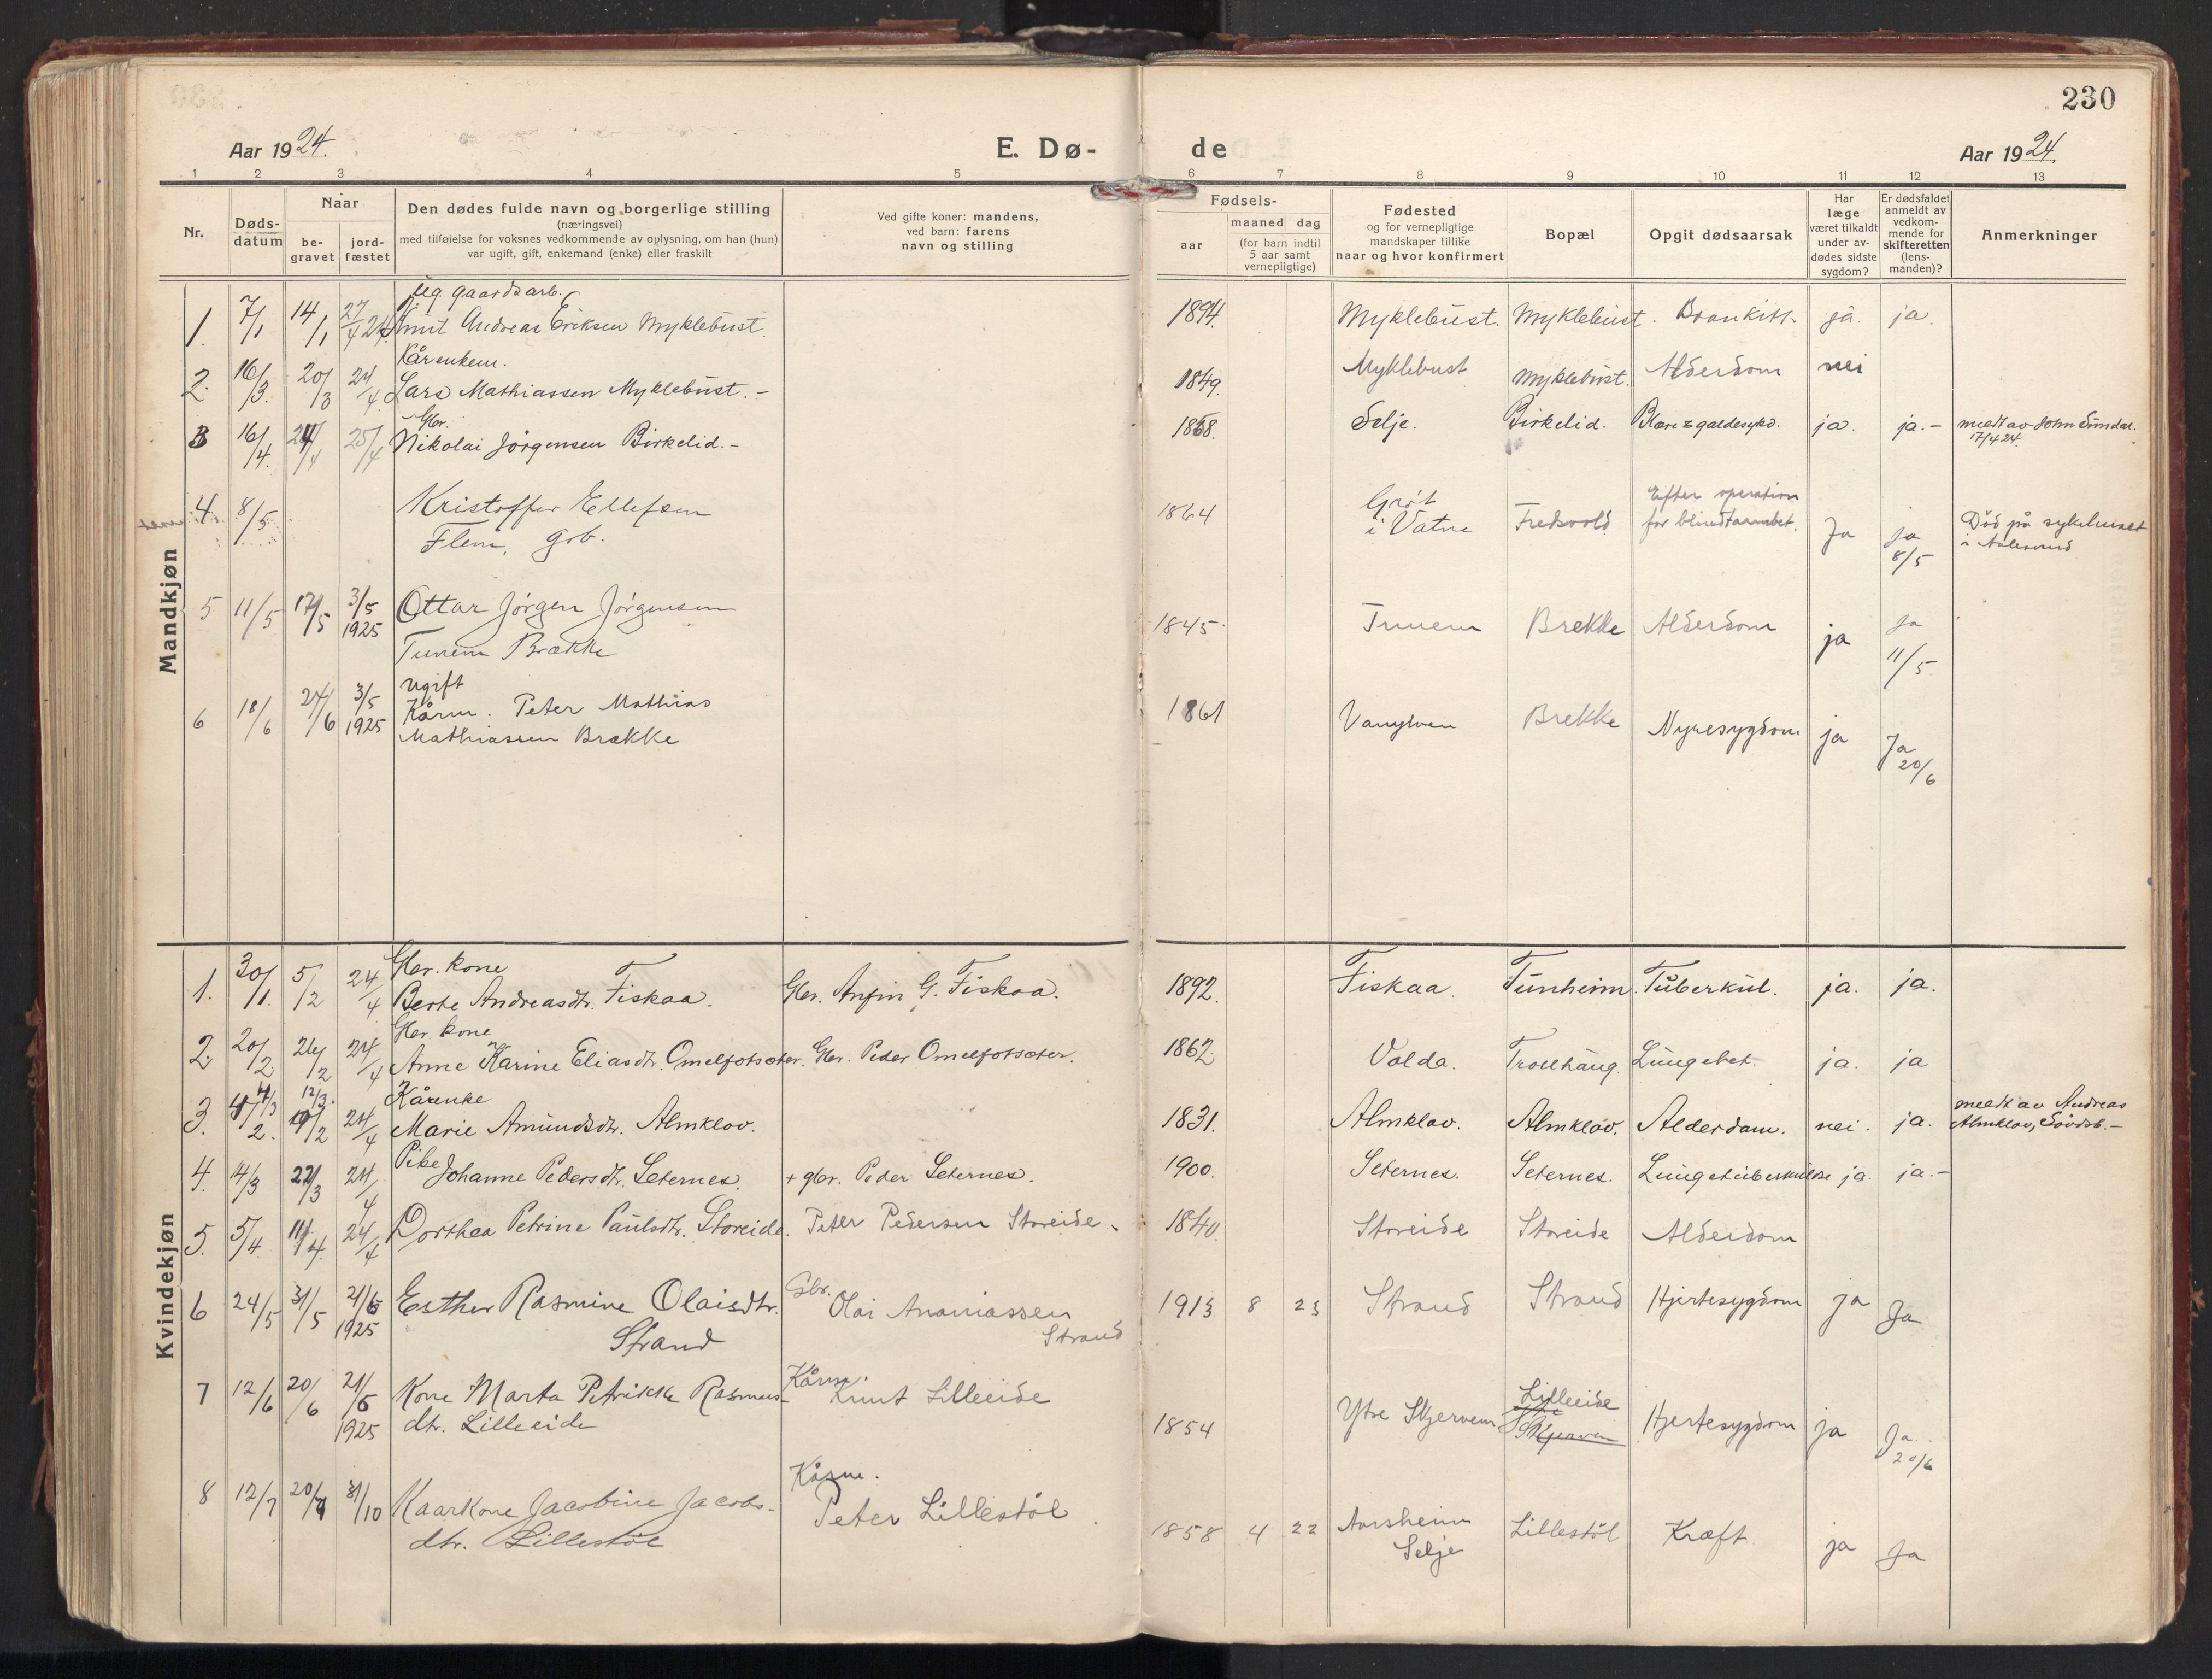 230
Aar 1924.
E. Dø-
de
Aar 1924.
1 2 3 4 5 6 7 8 9 10 11 12 13
Nr.
Døds-
datum
Naar
be-
gravet
jord-
fæstet
Den dødes fulde navn og borgerlige stilling
(næringsvei)
med tilføielse for voksnes vedkommende av oplysning, om han (hun)
var ugift, gift, enkemand (enke) eller fraskilt
Ved gifte koner: mandens,
ved barn: farens
navn og stilling
Fødsels-
aar
maaned dag
(for barn indtil
5 aar samt
vernepligtige)
Fødested
og for vernepligtige
mandskaper tillike
naar og hvor konfirmert
Bopæl
Opgit dødsaarsak
Har
læge
været tilkaldt
under av-
dødes sidste
sygdom?
Er dødsfaldet
anmeldt av
vedkom-
mende for
skifteretten
(lens-
manden)?
Anmerkninger
Mandkjøn
Ug. gaardsarb.
1. 7/1 14/1 27/4 24. Knut Andreas Eriksen Myklebust. 1894. Myklebust. Myklebust. Bronkitt. ja. ja.
Kårenkem.
2. 16/3. 20/3 24/4. Lars Mathiassen Myklebust. - 1849. Myklebust Myklebust. Alderdom nei
Gbr.
3 16/4. 24/4 25/4 Nikolai Jørgensen Birkelid. - 1868. Selje. Birkelid. Blære & galdesykd. ja. ja. - meldt av John Sundal.
17/4 24.
4. 8/5 Kristoffer Ellefsen 1864 Grøt Fredsvold Efter operation
Flem, gb. i Vatne for blindtarmbet. Ja Ja 8/5 Død på sykehuset
i Aalesund
5 11/5 17/5 3/5 1925 Ottar Jørgen Jørgensen 1845. Tunem Brekke Alderdom ja Ja 11/5
Tunem Brække
ugift
6 18/6 24/6 3/5 1925 Kårm. Peter Mathias 1861 Vanylven Brekke Nyresygdom ja Ja 20/6
Mathiassen Brække
Kvindekjøn
Gbr. kone
1. 30/1. 5/2 24/4 Berte Andreasdtr. Fiskaa. Gbr. Anfin G. Fiskaa. 1892. Fiskaa. Tunheim. Tuberkul. ja. ja.
Gbr. kone
2. 20/2 26/2 24/4 Anne Karine Eliasdtr. Omelfotsæter. Gbr. Peder Omelfotsæter. 1862. Volda. Trollhaug. Lungebet. ja. ja
Kårenke
3. 4/3 12/3. 24/4 Marie Amundsdtr. Almklov. 1831. Almklov. Almklov. Alderdom. nei. ja. meldt av Andreas
Almklov, Søvdeb. -
Pike
4. 4/3 22/3 24/4 Johanne Pedersdtr. Seternes. + gbr. Peder Seternes. 1900. Seternes. Seternes. Lungetuberkulose ja. ja. -
5. 5/4. 11/4. 24/4 Dorthea Petrine Paulsdtr. Storeide. Peter Pedersen Storeide. 1840. Storeide Storeide Alderdom
6 24/5 31/5 21/6 1925 Esther Rasmine Olaisdtr. Gbr. Olai Ananiassen 1913 8 23 Strand Strand Hjertesygdom ja Ja
Strand Strand
7 12/6 20/6 21/6 1925 Kone Marta Petrikke Rasmus- Kårm. Knut Lilleeide 1854 Ytre Skjervem Lilleeide Hjertesygdom ja Ja 20/6
dtr. Lilleeide
8 12/7 20/7 31/10 Kaarkone Jacobine Jacobs- Kårm. Peter Lillestøl 1858 4 22 Aarsheim Lillestøl Kræft ja Ja
dtr. Lillestøl Selje